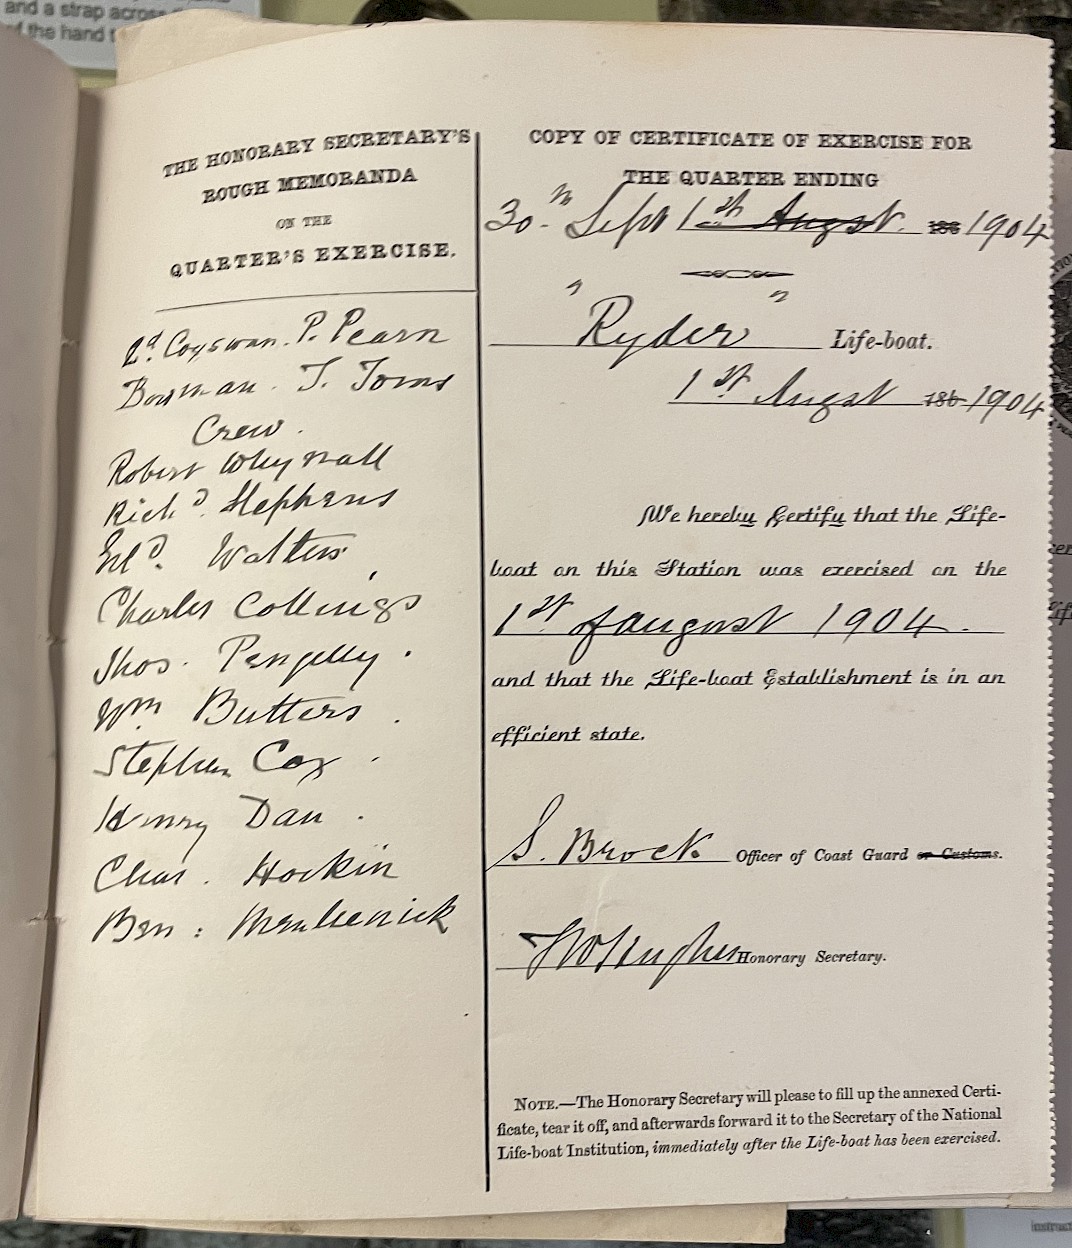 and a strap across
of the hand
THE HONORARY SECRETARY'S
ROUGH MEMORANDA
ON THE
QUARTER'S EXERCISE.
2d. Coxswan. P. Pearn
Bowman. T. Toms
Crew.
Robert Whynall
Richd. Stephens
Walters
Charles Collings
Thos. Pengelly.
Wm Butters.
Stephen Cox.
Henry Dan.
Chas. Hockin
Ben:
COPY OF CERTIFICATE OF EXERCISE FOR
THE QUARTER ENDING
30th Sept 1st August. 188 1904
"Ryder" Life-boat.
1st Augst 186 1904
We hereby Certify that the Life-
boat on this Station was exercised on the
1st of august 1904.
and that the Life-boat Establishment is in an
efficient state.
S. Brock Officer of Coast Guard or Customs.
Honorary Secretary.
NOTE.—The Honorary Secretary will please to fill up the annexed Certi-
ficate, tear it off, and afterwards forward it to the Secretary of the National
Life-boat Institution, immediately after the Life-boat has been exercised.